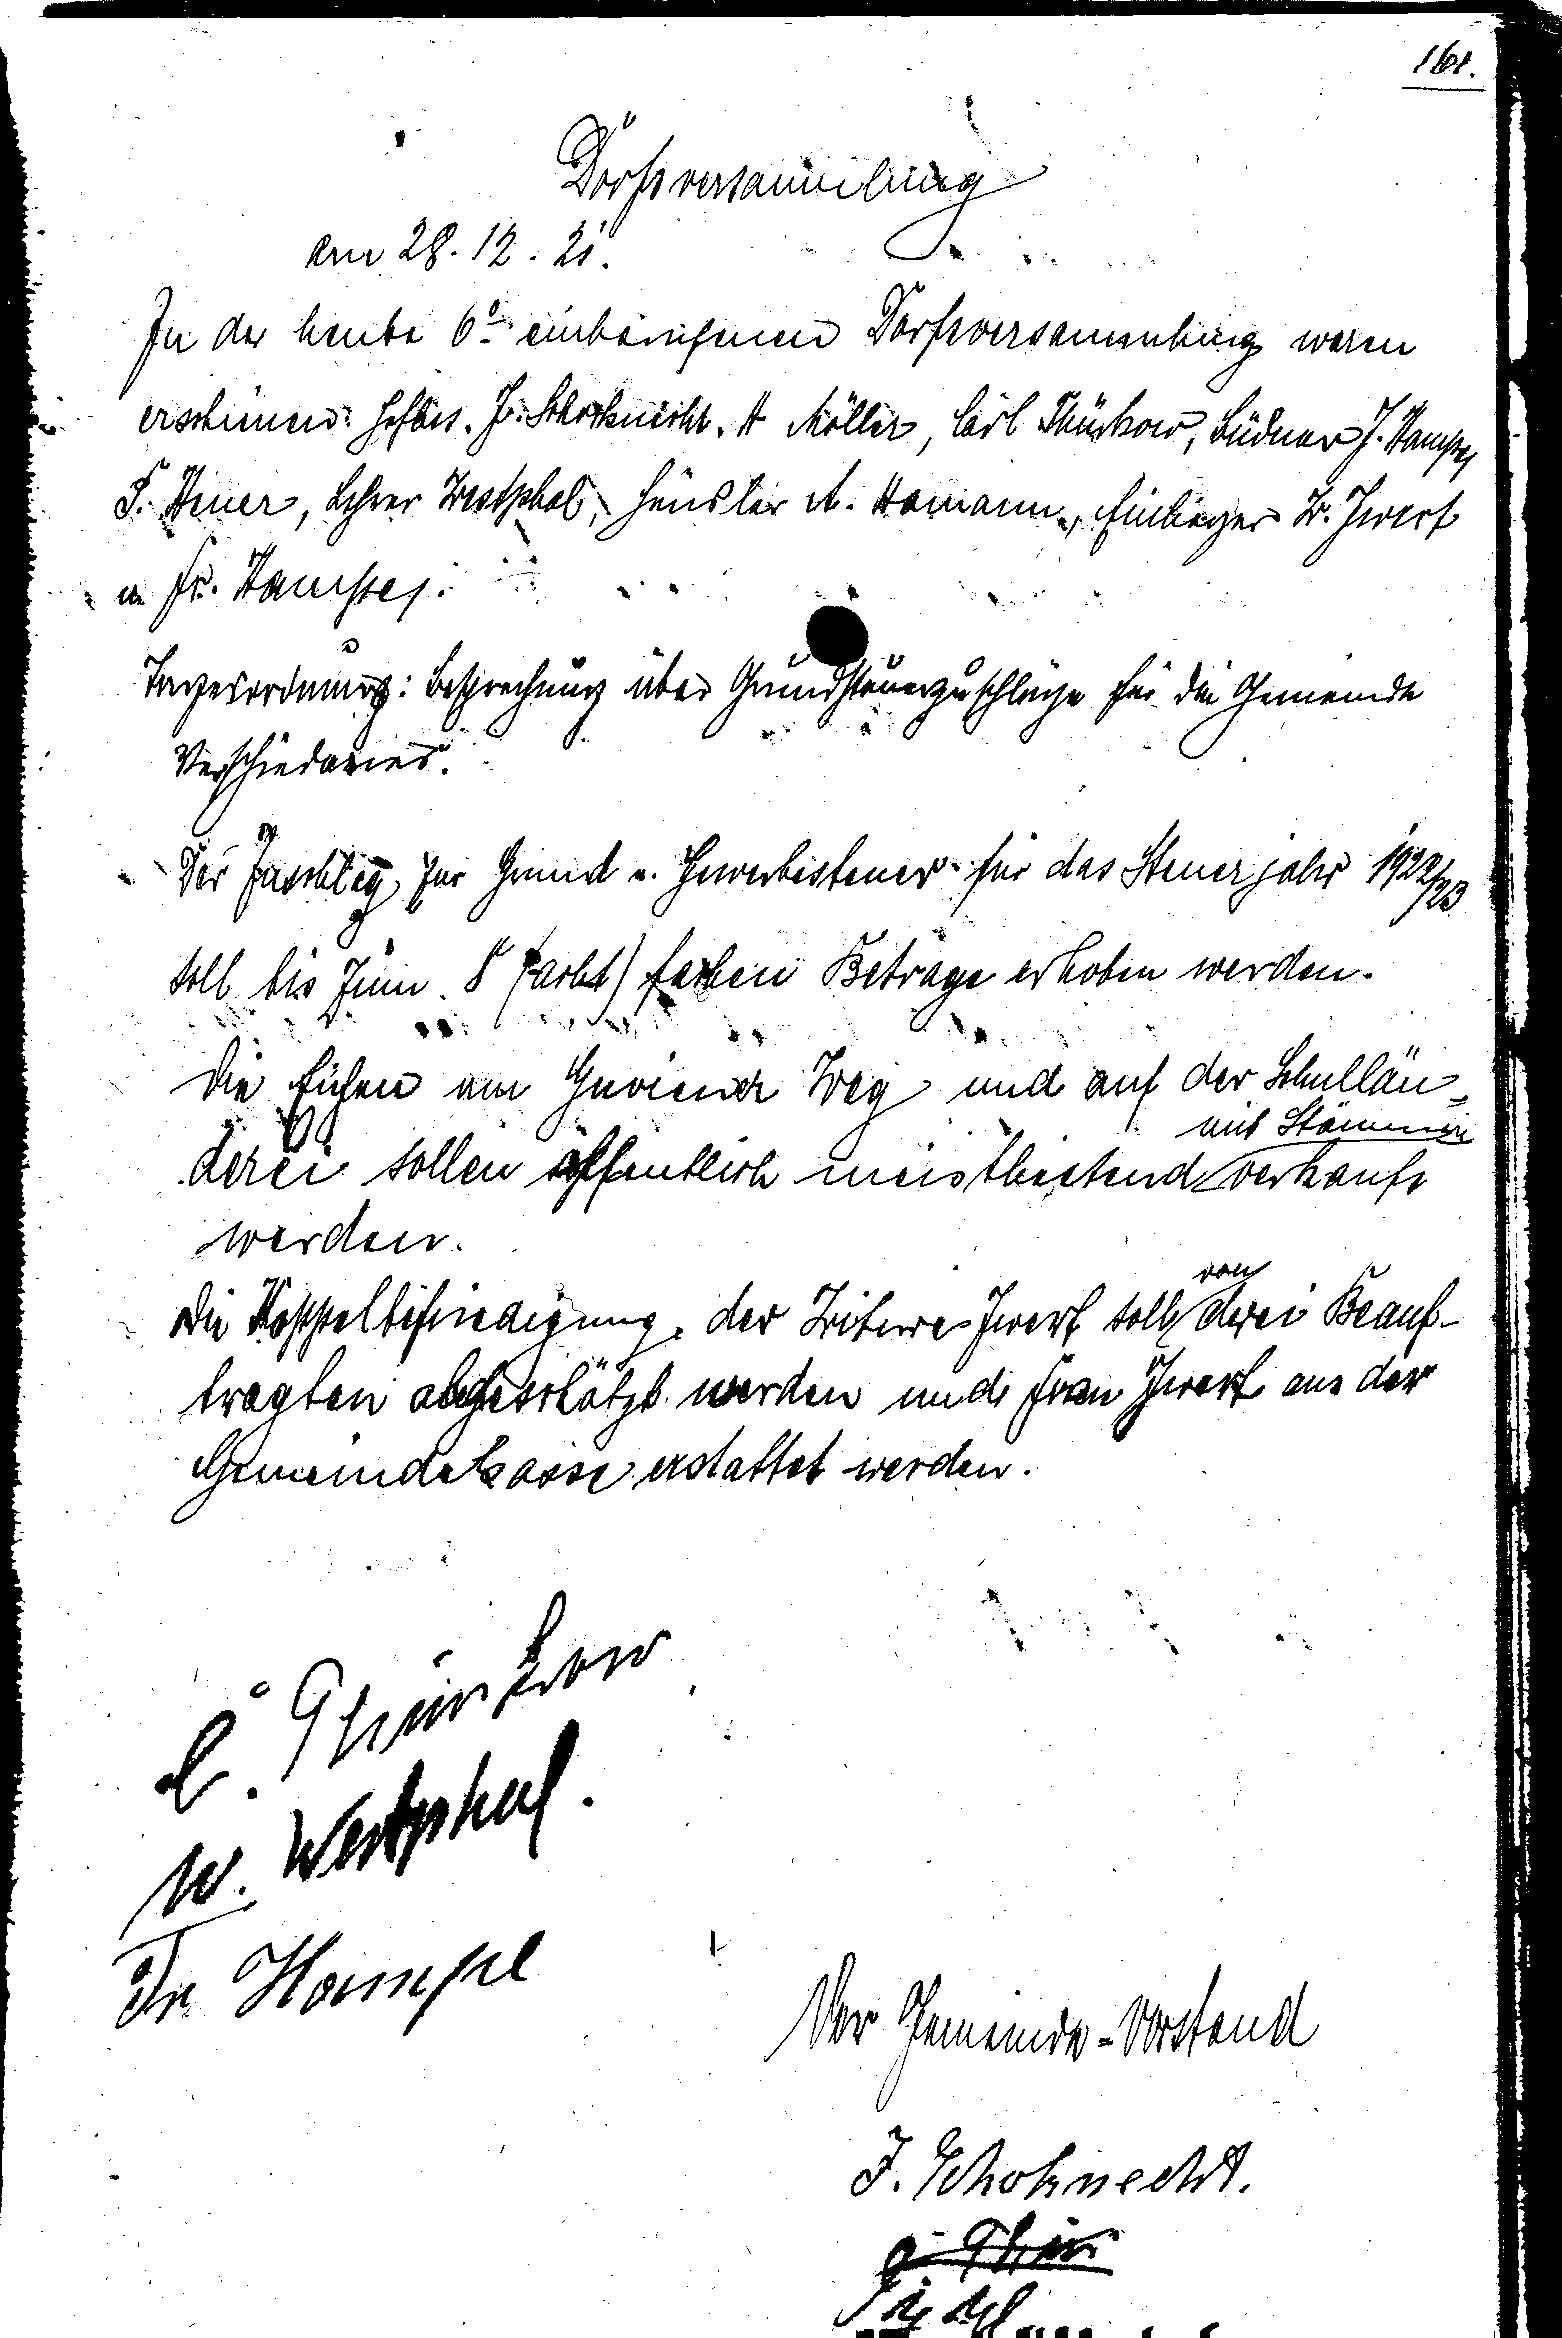 161.
Dorfsversammlung
am 28. 12. 21.
In der heute 6° einberufenen Dorfsversammlung waren
erschienen: Hofbes. J. Schoknecht, A Möller, Carl Thürkow, Büdner J. Hampe,
S. Heuer, Lehrer Westphal, Häusler A. Hamann, Einlieger W. Iwert
u. Fr. Hampe.
Tagesordnung: Besprechung über Grundsteuerzuschläge für die Gemeinde
Verschiedenes.
Der Zuschlag zur Grund u. Gewerbesteuer für das Steuerjahr 1922/23
soll bis zum 8 (acht) fachen Betrage erhoben werden.
Die Eichen am Weg und auf der Schullän-
mit Stämmen
derei sollen öffentlich meistbietend verkauft
werden.
von
Die Koppelbefriedigung der Witwe Iwert soll drei Beauf-
tragten abgeschätzt werden und Frau Iwert aus der
Gemeindekasse erstattet werden.
C. Thürkow
W. Westphal.
Fr. Hampe
Der Gemeinde-Vorstand
J. Schoknecht.